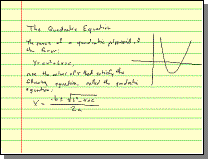 The Quadratic Equation
The zeroes of a quadratic polynomial of
the form:
y = ax²+bx+c,
are the values of x that satisfy the
following equation, called the quadratic
equation:
x = -b ± √b²-4ac
2a